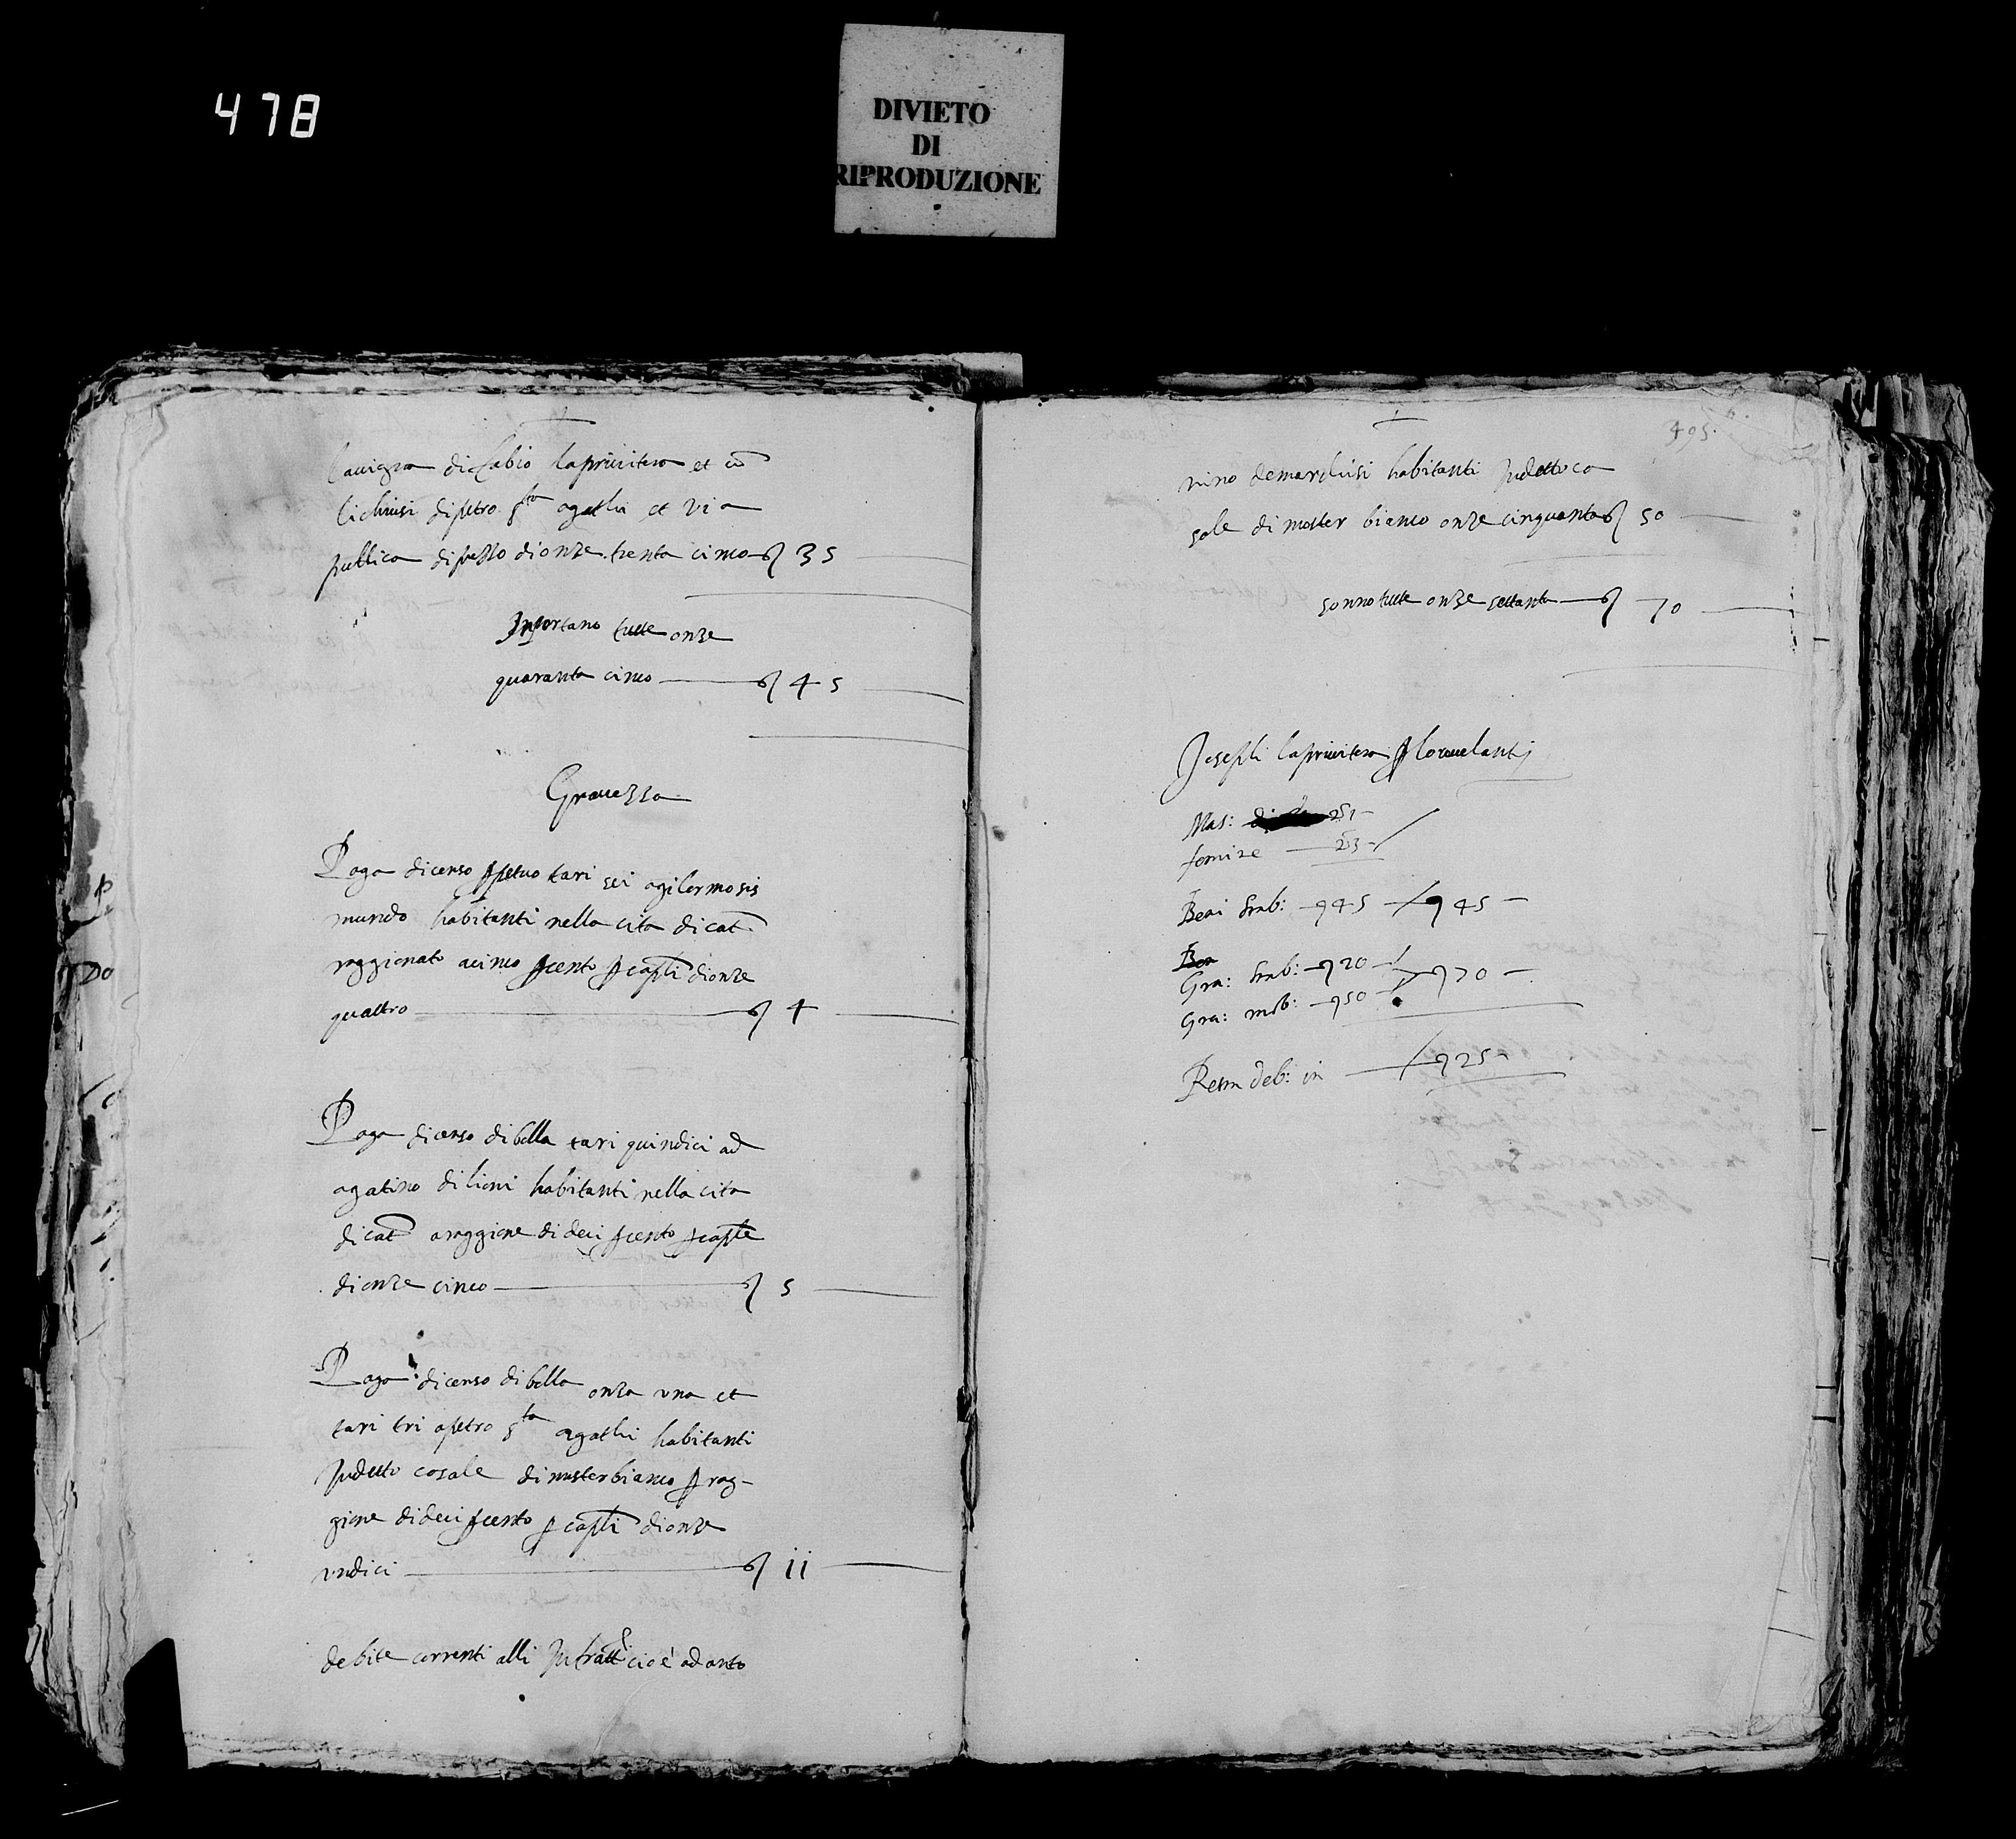 478
DIVIETO
DI
RIPRODUZIONE
la vigna di Fabio la privitera et con
li chiusi di petro sta agathi et via
publica di prezzo di onze trenta cinco 35
Inportano tutte onze
quaranta cinco 45
Gravezza
Paga di censo ppetuo tari sei a gilermo sis
mundo habitanti nella cita di cata
raggionato a cinco p cento p capli di onze
quattro 4
Paga di censo di bolla tari quindici ad
agatino di lioni habitanti nella cita
di cata a raggione di deci p cento p caple
di onze cinco 5
Paga di censo di bolla onza una et
tari tri a petro sta agathi habitanti
In detto casale di musterbianco p rag-
gione di deci p cento p capli di onze
undici ii
debite correnti alli Infratti cioè ad anto
405.
nino de marchisi habitanti In detto ca
sale di moster bianco onze cinquanta 50
sonno tutte onze settanta 70
Joseph la privitera
Mas: 2
femine 3
Beni stab: 45 45
Gra: stab: 20
70
Gra: mob: 50
Resta deb: in 25